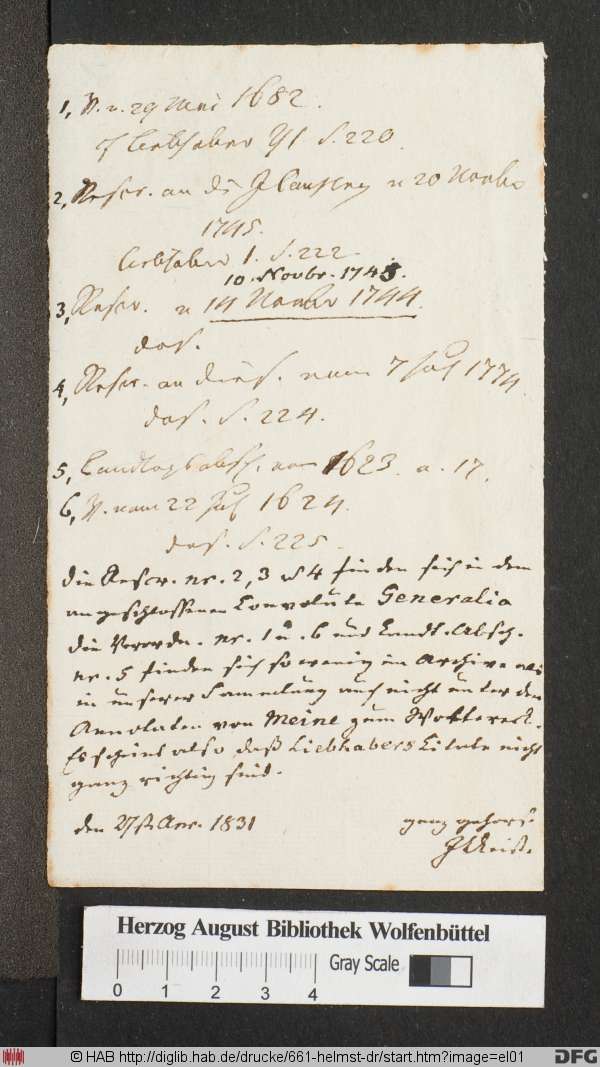 1, V. v. 29 Mai 1682.
cf Liebhaber I S. 220
2, Rescr. an die J Canzley v 20 Novbr
1745.
Liebhaber 1. S. 222.
10. Novbr. 1743.
3, Rescr. v 14 Novbr 1744.
das.
4, Rescr. an dies. vom 7 Jul 1774.
das. S. 224.
5, Landtagsabsch. von 1623. a. 17.
6, V. vom 22 Jul 1624.
das. S. 225.
die Rescr. nr. 2, 3 & 4 finden sich in dem
angeschlossenen Convolute Generalia
die Verordn. nr. 1 u. 6 und Landt. Absch.
nr. 5 finden sich so wenig im Archive als
in unserer Sammlung auch nicht unter den
Annotaten von Meine zum Woltereck.
Es scheint also daß Liebhabers Citate nicht
ganz richtig sind.
den 1831
ganz gehors.
Herzog August Bibliothek Wolfenbüttel
Gray Scale
0 1 2 3 4
© HAB http://diglib.hab.de/drucke/661-helmst-dr/start.htm?image=el01
DFG